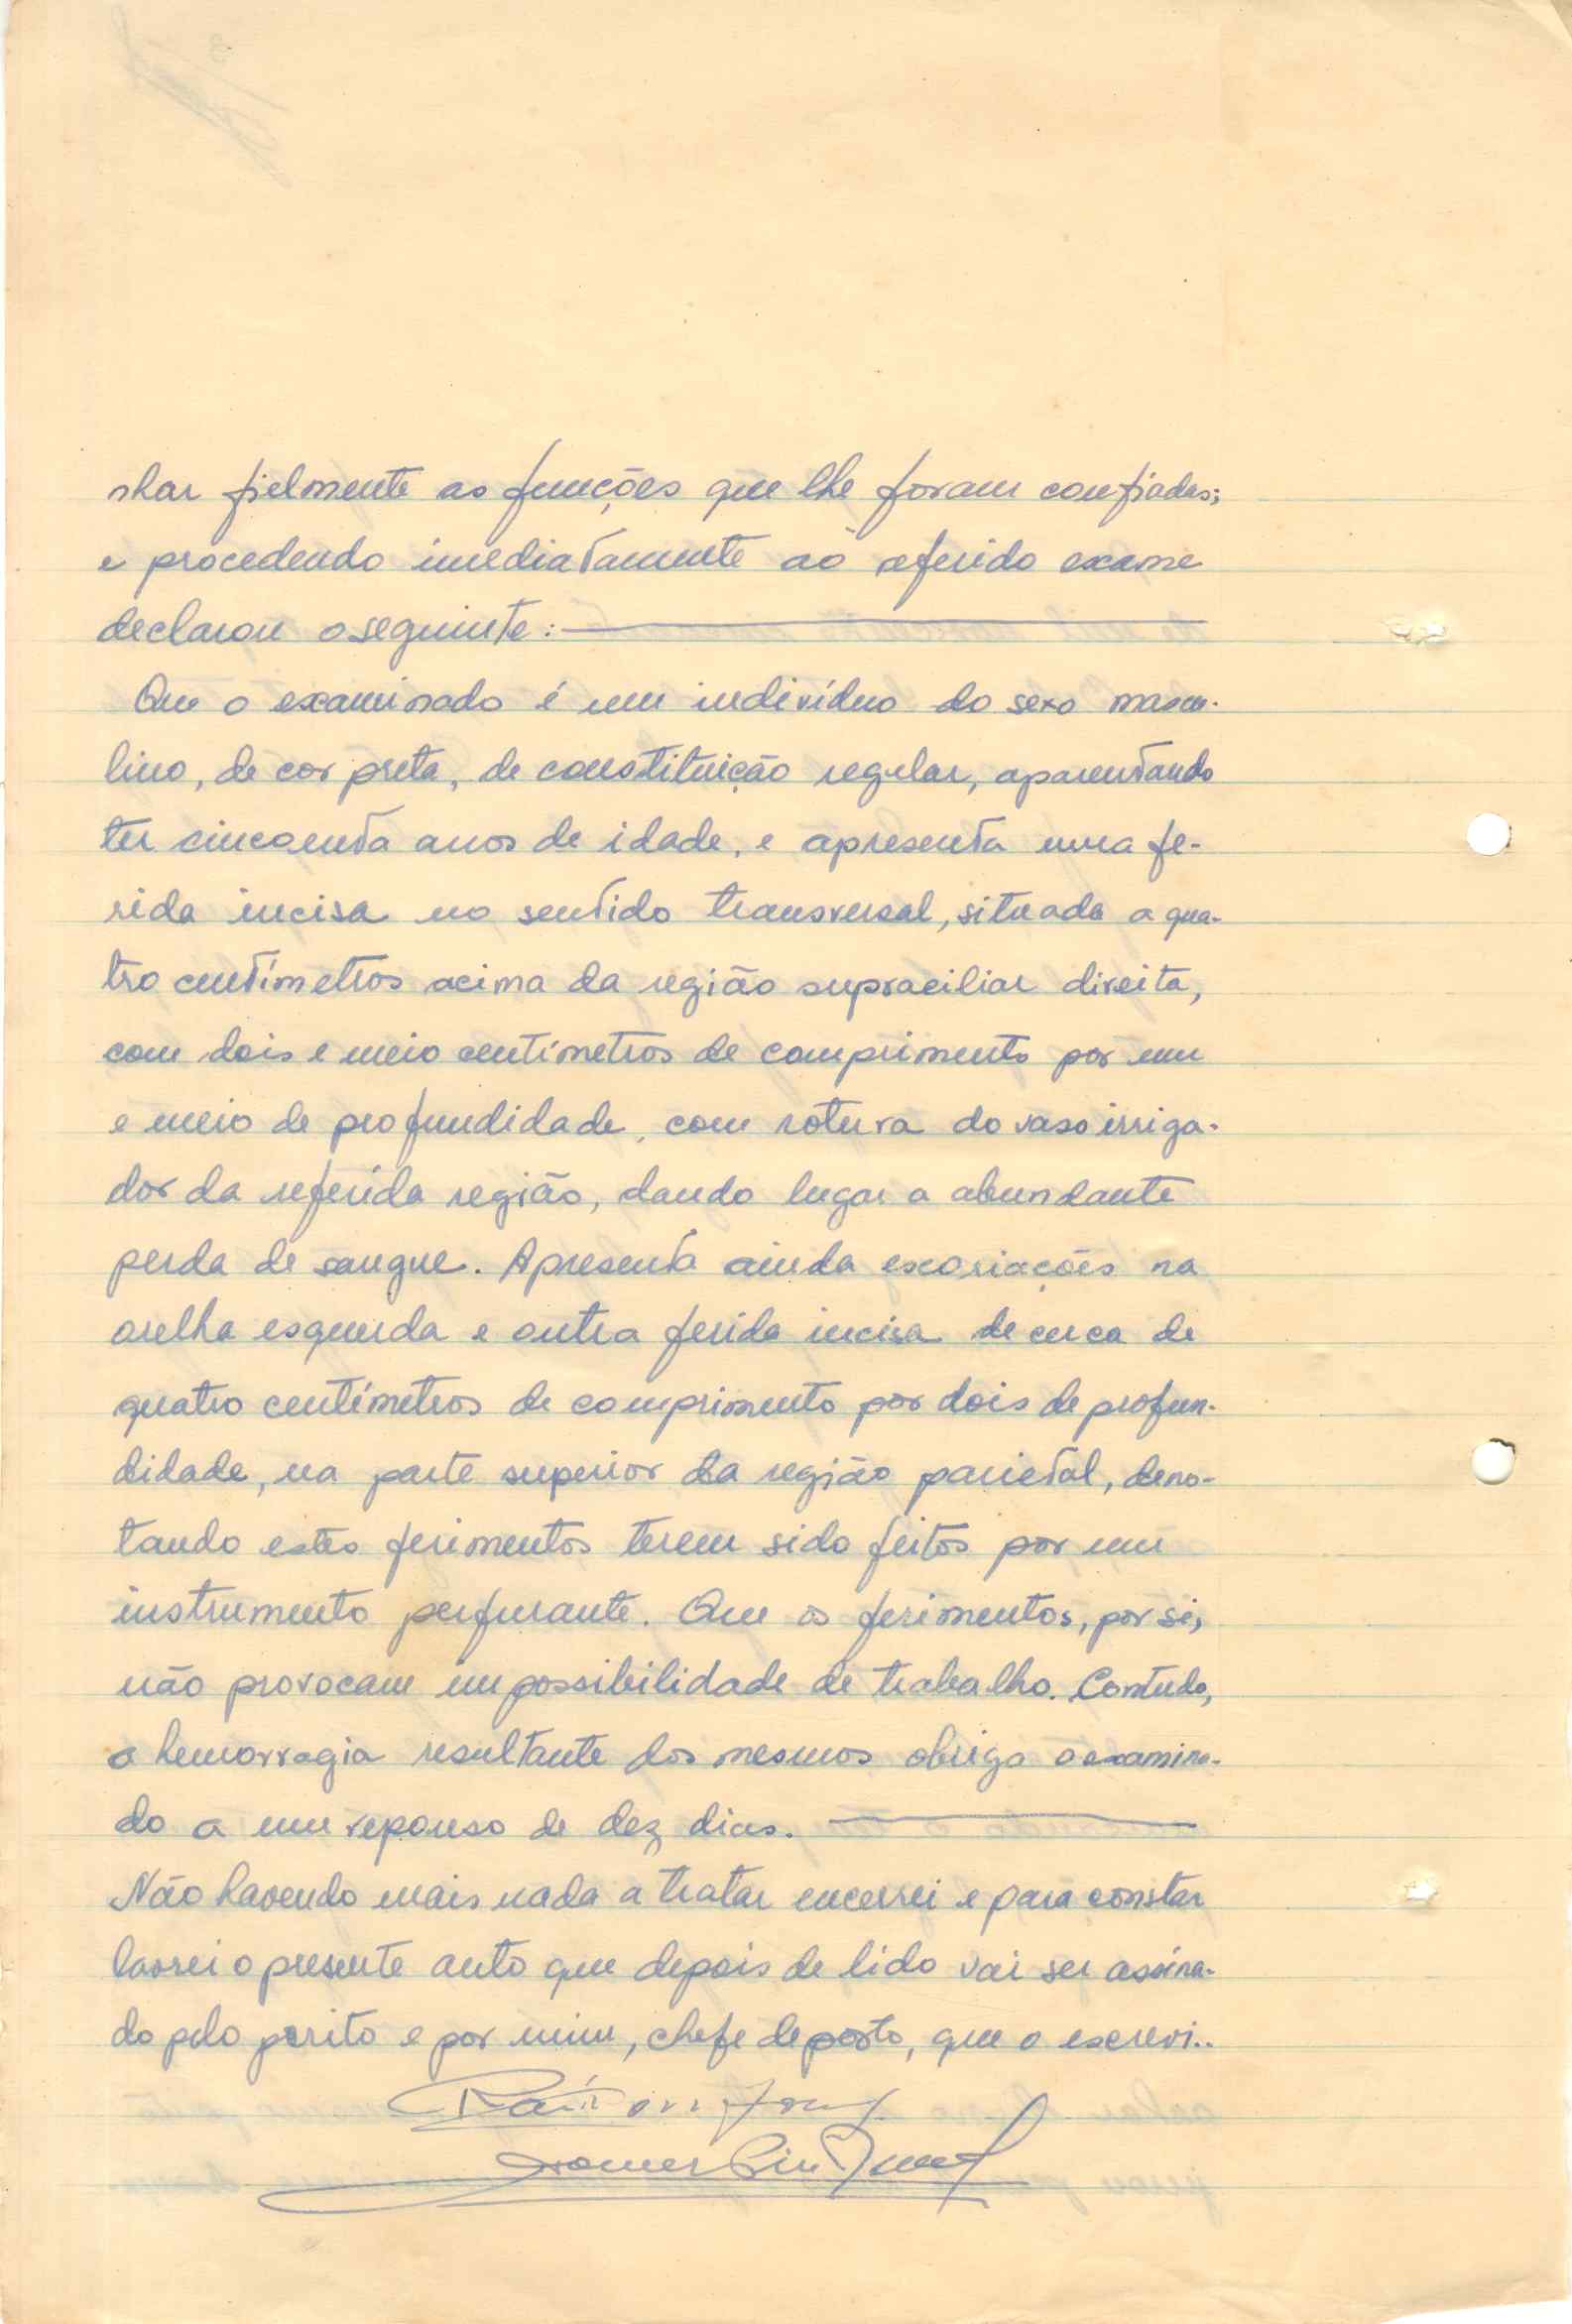 nhar fielmente as funções que lhe foram confiadas;
e procedendo imediatamente ao referido exame
declarou o seguinte:
Que o examinado é um indivíduo do sexo mascu-
lino, de cor preta, de constituição regular, aparentando
ter cincoenta anos de idade, e apresenta uma fe-
rida incisa no sentido transversal, situada a qua-
tro centímetros acima da região supraciliar direita,
com dois e meio centímetros de comprimento por um
e meio de profundidade, com rotura do vaso irriga-
dor da referida região, dando lugar a abundante
perda de sangue. Apresenta ainda escoriações na
orelha esquerda e outra ferida incisa de cerca de
quatro centímetros de comprimento por dois de profun-
didade, na parte superior da região parietal, deno-
tando estes ferimentos terem sido feitos por um
instrumento perfurante. Que os ferimentos, por si,
não provocam impossibilidade de trabalho. Contudo,
a hemorragia resultante dos mesmos obriga o examina-
do a um repouso de dez dias.
Não havendo mais nada a tratar encerrei e para constar
lavrei o presente auto que depois de lido vai ser assina-
do pelo perito e por mim, chefe de posto, que o escrevi..